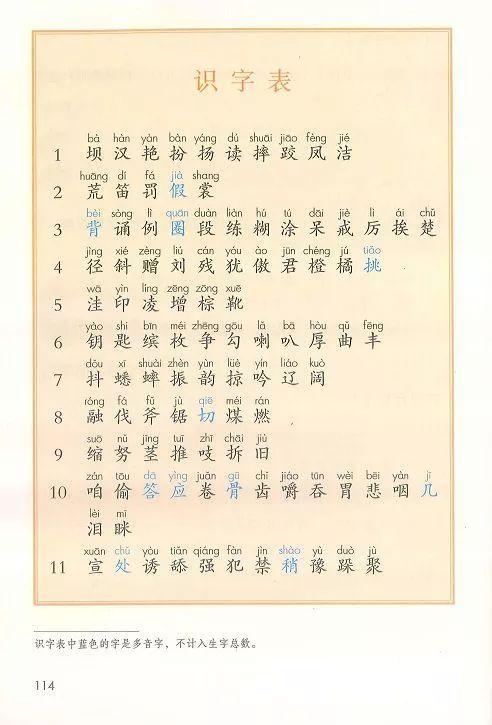 识字表
bà hàn yàn bàn yáng dú shuāi jiāo fèng jié
1 坝 汉 艳 扮 扬 读 摔 跤 凤 洁
huāng dí fá jià shang
2 荒 笛 罚 假 裳
bèi sòng lì quān duàn liàn hú tú dāi jiè lì ái chǔ
3 背 诵 例 圈 段 练 糊 涂 呆 戒 厉 挨 楚
jìng xié zèng liú cán yóu ào jūn chéng jú tiāo
4 径 斜 赠 刘 残 犹 傲 君 橙 橘 挑
wā yìn líng zēng zōng xuē
5 洼 印 凌 增 棕 靴
yào shi bīn méi zhēng gōu lǎ bā hòu qǔ fēng
6 钥 匙 缤 枚 争 勾 喇 叭 厚 曲 丰
dǒu xī shuài zhèn yùn lüè yín liáo kuò
7 抖 蟋 蟀 振 韵 掠 吟 辽 阔
róng fá fǔ jù qiē méi rán
8 融 伐 斧 锯 切 煤 燃
suō nǔ jīng tuī zhī chāi jiù
9 缩 努 茎 推 吱 拆 旧
zán tōu dā yìng juǎn gū chǐ jiáo tūn wèi bēi yàn jǐ
10 咱 偷 答 应 卷 骨 齿 嚼 吞 胃 悲 咽 几
lèi mī
泪 眯
xuān chǔ yòu tiǎn qiáng fàn jìn shào yù duò jù
11 宣 处 诱 舔 强 犯 禁 稍 豫 跺 聚
识字表中蓝色的字是多音字，不计入生字总数。
114